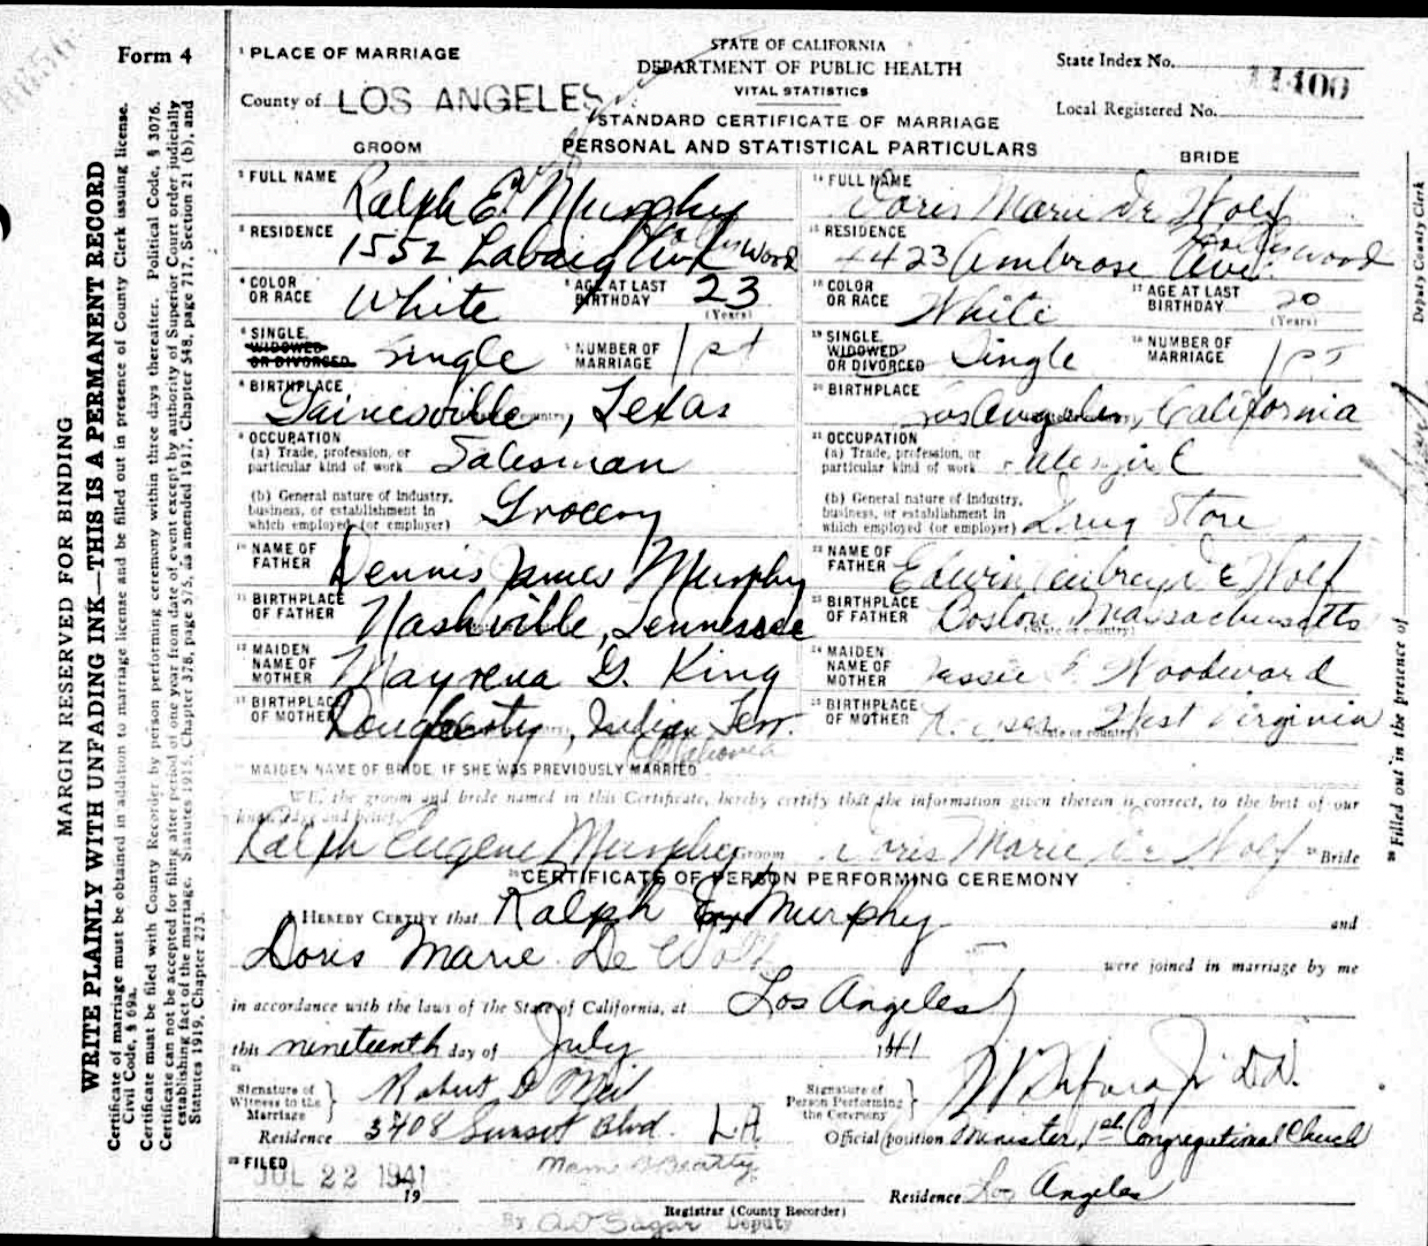 Form 4
MARGIN RESERVED FOR BINDING
WRITE PLAINLY WITH UNFADING INK—THIS IS A PERMANENT RECORD
Certificate of marriage must be obtained in addition to marriage license and be filled out in presence of County Clerk issuing license.
Civil Code, § 69a.
Certificate must be filed with County Recorder by person performing ceremony within three days thereafter. Political Code, § 3076.
Certificate can not be accepted for filing after period of one year from date of event except by authority of Superior Court order judicially
establishing fact of the marriage. Statutes 1915, Chapter 378, page 575, as amended 1917, Chapter 548, page 717, Section 21 (b), and
Statutes 1919, Chapter 273.
1 PLACE OF MARRIAGE
County of LOS ANGELES
STATE OF CALIFORNIA
DEPARTMENT OF PUBLIC HEALTH
VITAL STATISTICS
STANDARD CERTIFICATE OF MARRIAGE
State Index No.
11400
Local Registered No.
PERSONAL AND STATISTICAL PARTICULARS
GROOM
BRIDE
FULL NAME Ralph E. Murphy
FULL NAME Doris Marie De Wolf
RESIDENCE 1552 Hollywood
RESIDENCE 4423 Ambrose Ave. Hollywood
COLOR OR RACE White AGE AT LAST BIRTHDAY 23 (Years)
COLOR OR RACE White AGE AT LAST BIRTHDAY 20 (Years)
SINGLE, WIDOWED OR DIVORCED Single NUMBER OF MARRIAGE 1st
SINGLE, WIDOWED OR DIVORCED Single NUMBER OF MARRIAGE 1st
BIRTHPLACE Gainesville, Texas
BIRTHPLACE Los Angeles, California
OCCUPATION
(a) Trade, profession, or
particular kind of work Salesman
OCCUPATION
(a) Trade, profession, or
particular kind of work Salesgirl
(b) General nature of industry,
business, or establishment in
which employed (or employer) Grocery
(b) General nature of industry,
business, or establishment in
which employed (or employer) Drug Store
NAME OF FATHER Dennis James Murphy
NAME OF FATHER Edwin Aubrey De Wolf
BIRTHPLACE OF FATHER Nashville, Tennessee
BIRTHPLACE OF FATHER Boston, Massachusetts
(State or country)
MAIDEN NAME OF MOTHER Mayrena G. King
MAIDEN NAME OF MOTHER Woodward
BIRTHPLACE OF MOTHER Dougherty, Indian Terr.
Oklahoma
BIRTHPLACE OF MOTHER West Virginia
(State or country)
MAIDEN NAME OF BRIDE, IF SHE WAS PREVIOUSLY MARRIED
WE, the groom and bride named in this Certificate, hereby certify that the information given therein is correct, to the best of our
knowledge and belief.
Ralph Eugene Murphy Groom Doris Marie De Wolf Bride
CERTIFICATE OF PERSON PERFORMING CEREMONY
I HEREBY CERTIFY that Ralph Murphy and
Doris Marie De Wolf were joined in marriage by me
in accordance with the laws of the State of California, at Los Angeles
this nineteenth day of July 1941
Signature of
Witness to the
Marriage
Robert
Residence 3408 Sunset Blvd. L.A
Signature of
Person Performing
the Ceremony
D.D.
Official position Minister, 1st Congregational Church
Residence Los Angeles
FILED
JUL 22 1941
19
Mame B Beatty
Registrar (County Recorder)
By Deputy
Filled out in the presence of
Deputy County Clerk